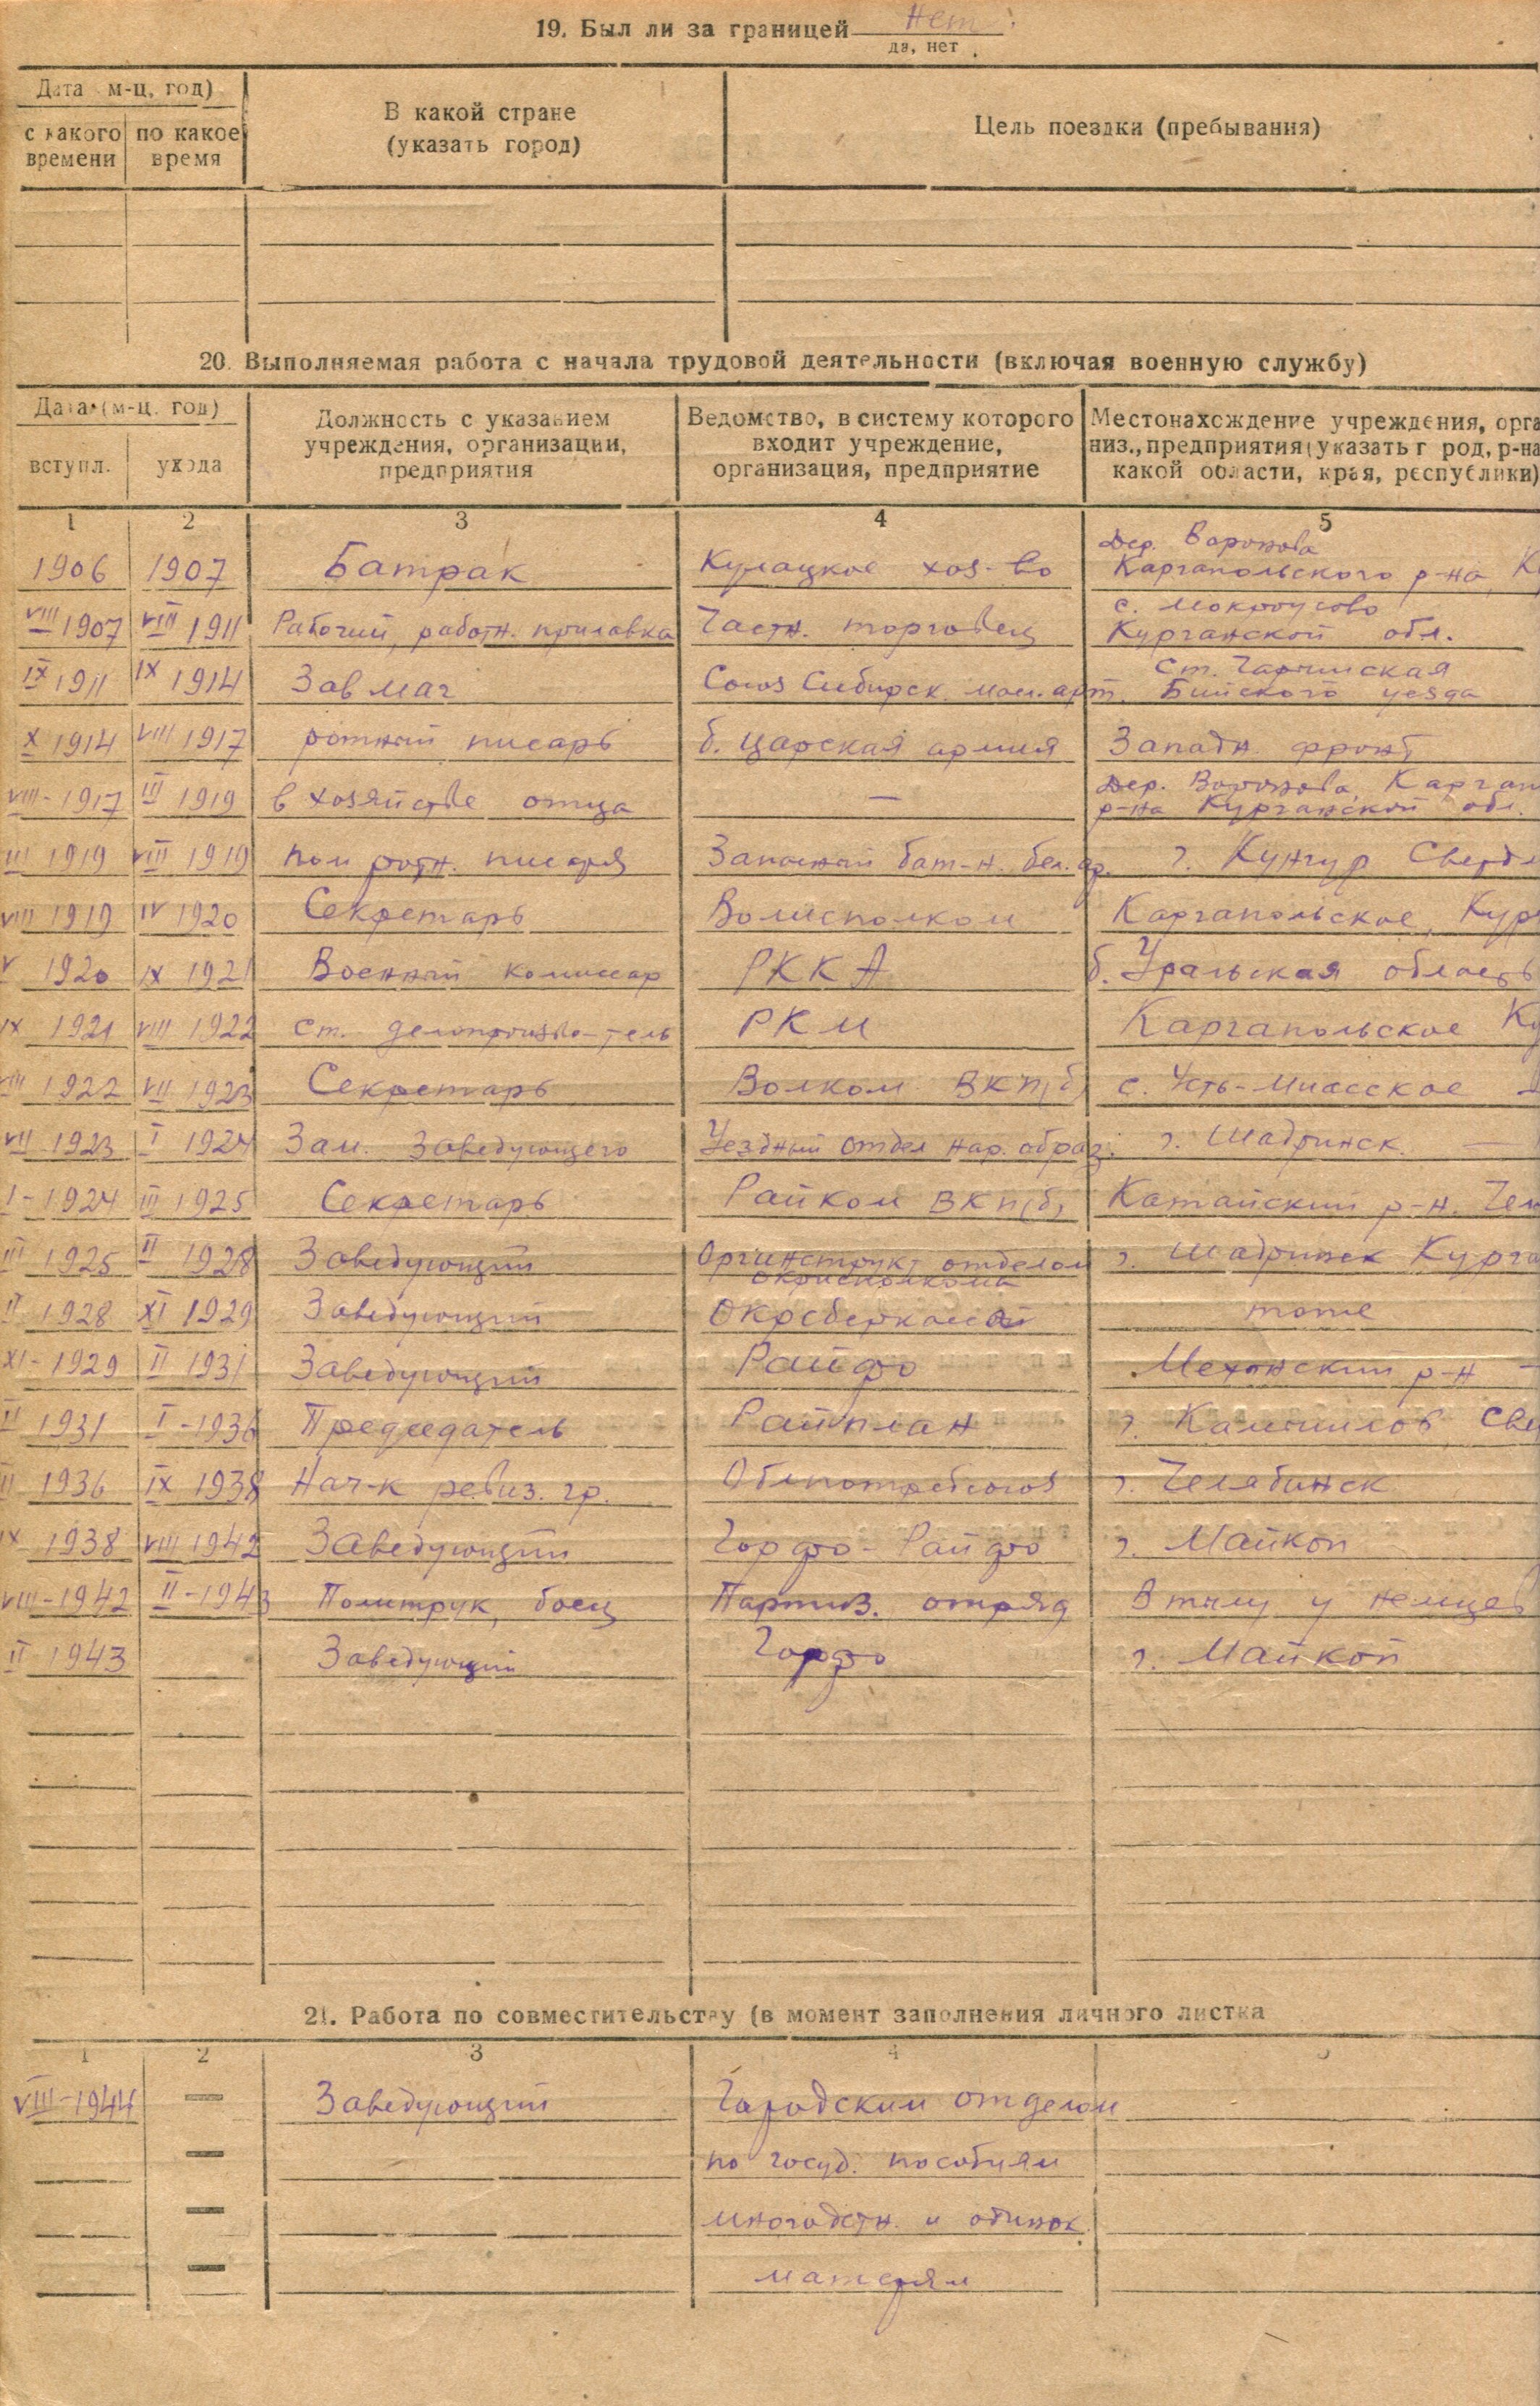 19. Был ли за границей Нет
да, нет
Дата м-ц, год)
с какого времени
по какое время
В какой стране
(указать город)
Цель поездки (пребывания)
20. Выполняемая работа с начала трудовой деятельности (включая военную службу)
Дата (м-ц. год)
вступл.
ухода
Должность с указанием
учреждения, организации,
предприятия
Ведомство, в систему которого
входит учреждение,
организация, предприятие
Местонахождение учреждения, орга
низ., предприятия (указать г род, р-на
какой области, края, республики)
1 2 3 4 5
Дер. Воронова
1906 1907 Батрак Кулацкое хоз-во Каргапольского р-на,
с. Мокроусово
VIII 1907 VIII 1911 Рабочий, работн. прилавка Частн. торговец Курганской обл.
Ст.
IX 1911 IX 1914 Зав маг Союз Сибирск. масл. арт. Бийского уезда
X 1914 VIII 1917 ротный писарь б. царская армия Западн. фронт
Дер. Воронова, Каргап
VIII-1917 III 1919 в хозяйстве отца — р-на Курганской обл.
III 1919 VIII 1919 пом ротн. писаря Запасный бат-н. бел. ар. г. Кунгур Свердл
VIII 1919 IV 1920 Секретарь Волисполком Каргапольское, Кург
V 1920 IX 1921 Военный комиссар РККА б. Уральская область
IX 1921 VIII 1922 ст. делопроизво-тель РКМ Каргапольское Ку
VIII 1922 VII 1923 Секретарь Волком ВКП(б) с. Усть-Миасское
VII 1923 I 1924 Зам. Заведующего Уездный отдел нар. образ. г. Шадринск —
I-1924 III 1925 Секретарь Райком ВКП(б) Катайский р-н. Чел
III 1925 II 1928 Заведующий Оргинструкт отделом г. Шадринск Курга
окрисполкома
II 1928 XI 1929 Заведующий Окрсберкассой тоже
XI-1929 II 1931 Заведующий Райфо Мехонский р-н —
II 1931 I-1936 Председатель Райплан г. Камышлов Све
II 1936 IX 1938 Нач-к ревиз. гр. Облпотребсоюз г. Челябинск
IX 1938 VIII 1942 Заведующий Горфо-Райфо г. Майкоп
VIII-1942 II-1943 Политрук, боец Партиз. отряд В тылу у немцев
II 1943 Заведующий Горфо г. Майкоп
21. Работа по совместительству (в момент заполнения личного листка
1 2 3 4 5
VIII-1944 — Заведующий Городским отделом
— по госуд. пособиям
— многодетн. и одинок.
— матерям